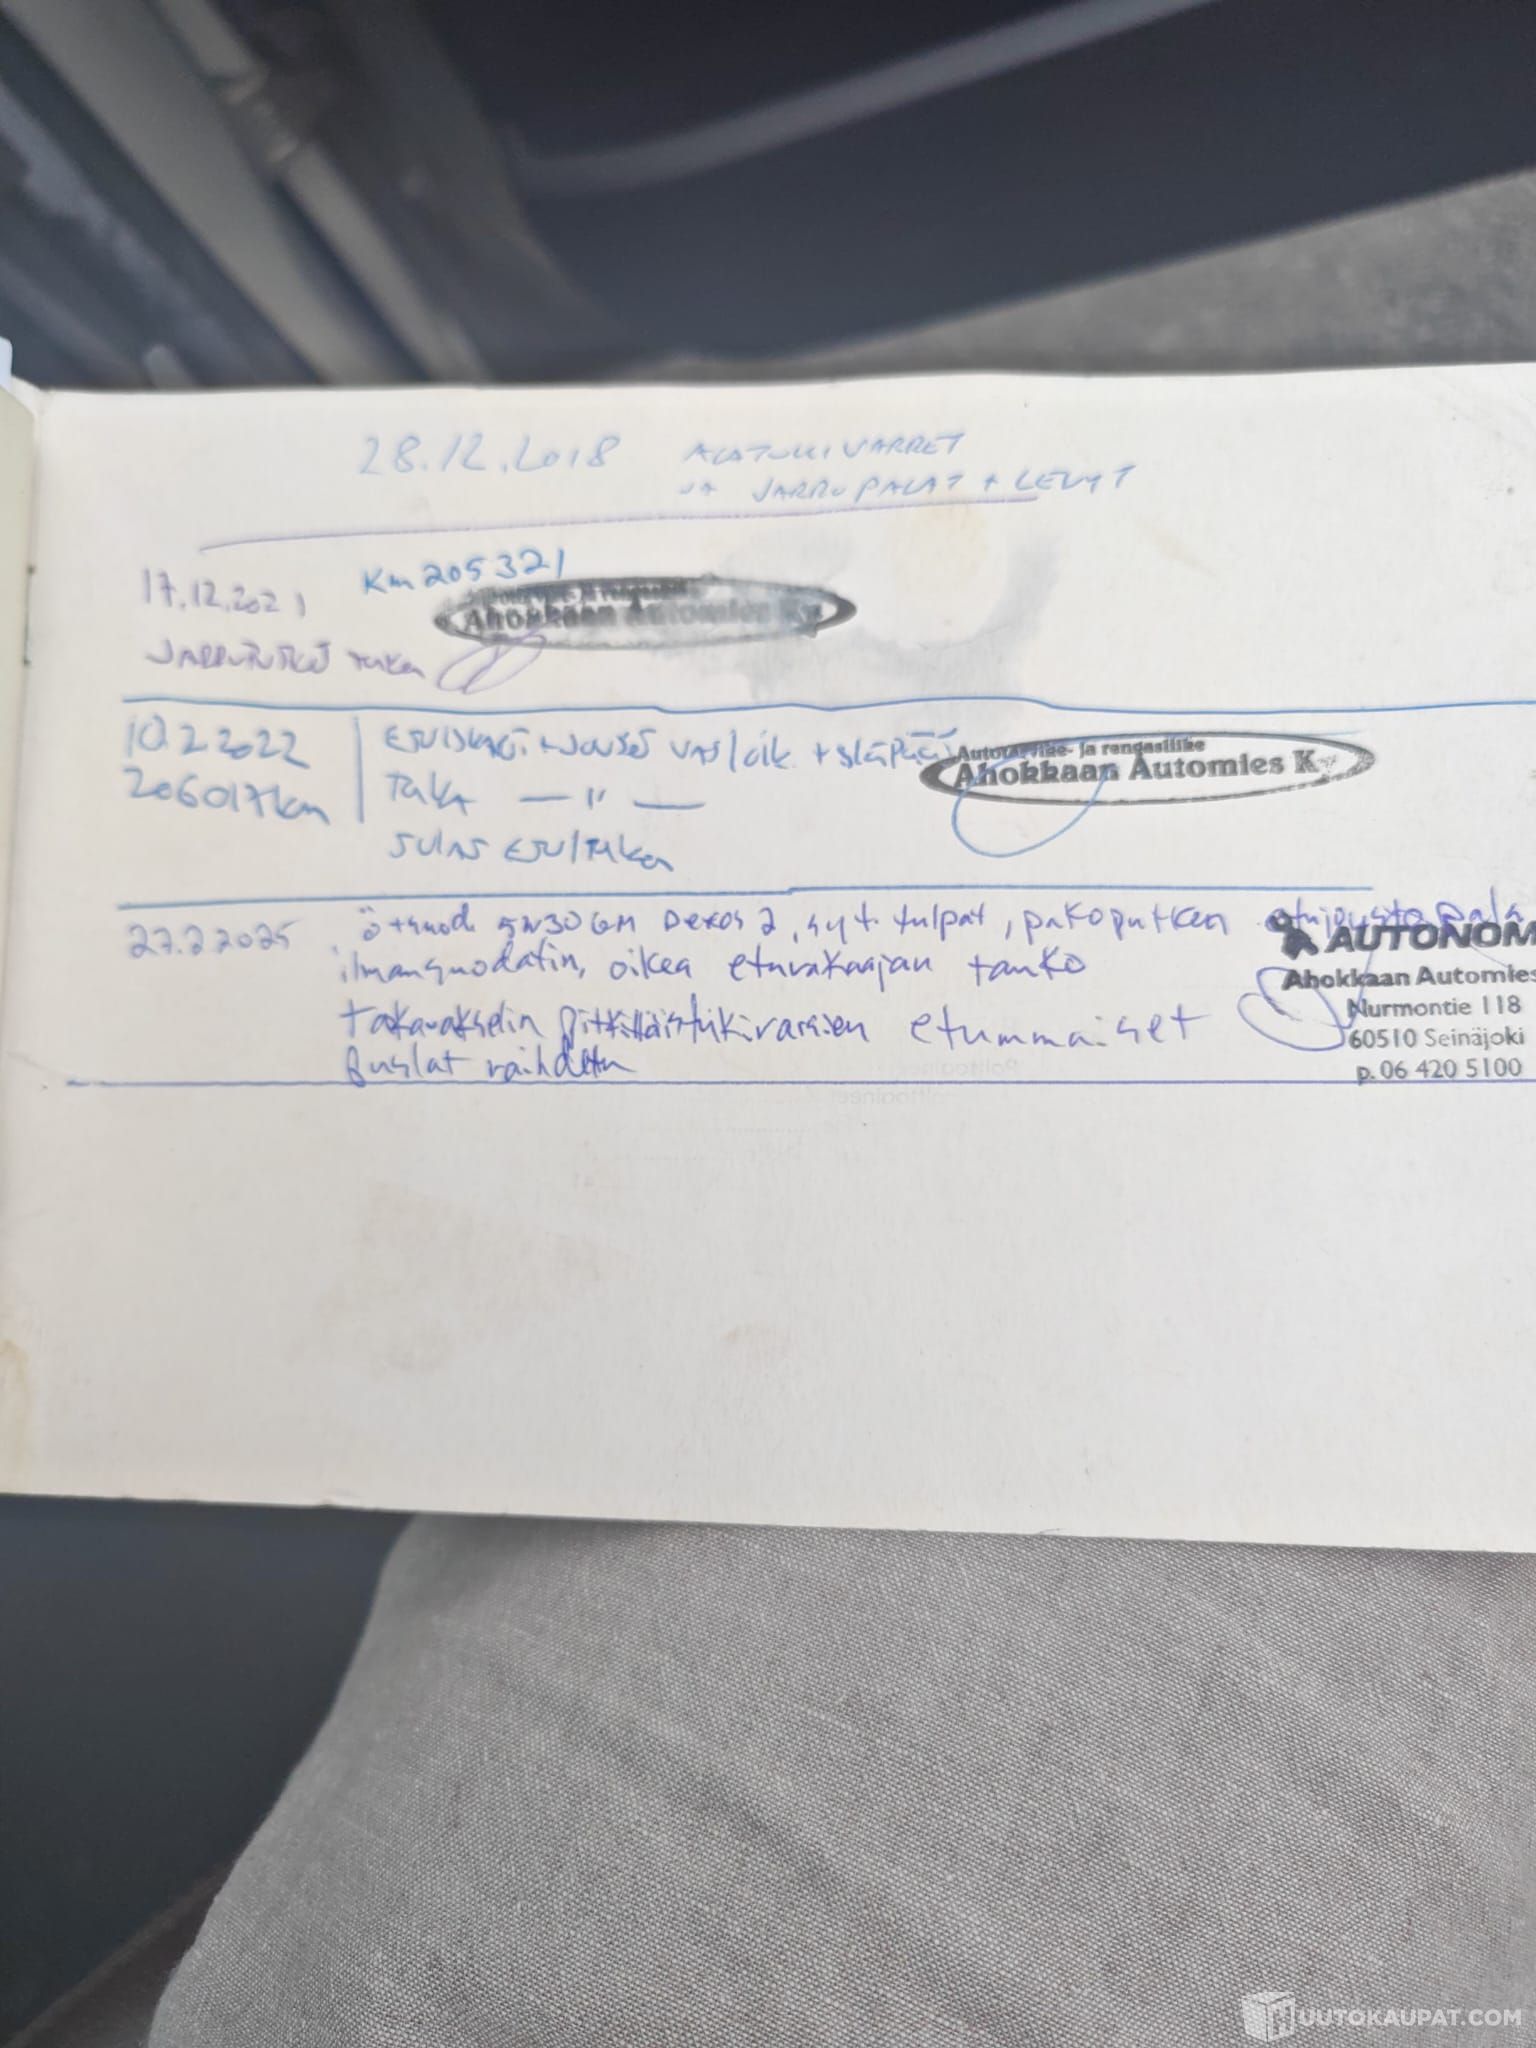 28.12.2018 ALATUKIVARRET
JA JARRUPALAT + LEVYT
Km 205321
17.12.2021
Ahokkaan Automies Ky
JARRUPUTKET taka
10.2.2022 ETUISKARI + JOUSET VAS/OIK. + YLÄPÄÄ
Autotarvike- ja rengasliike
Ahokkaan Automies Ky
206017km TAKA — " —
JULAS ETU/TAKA
27.2.2025 Ö+suod. 5W30 GM Dexos 2, syt. tulpat, pakoputken etujousto pala
AUTONOM
ilmansuodatin, oikea etuvakaajan tanko
Ahokkaan Automies
Nurmontie 118
taka-akselin pitkittäistukivarsien etummaiset
60510 Seinäjoki
puslat vaihdettu
p. 06 420 5100
UUTOKAUPAT.COM